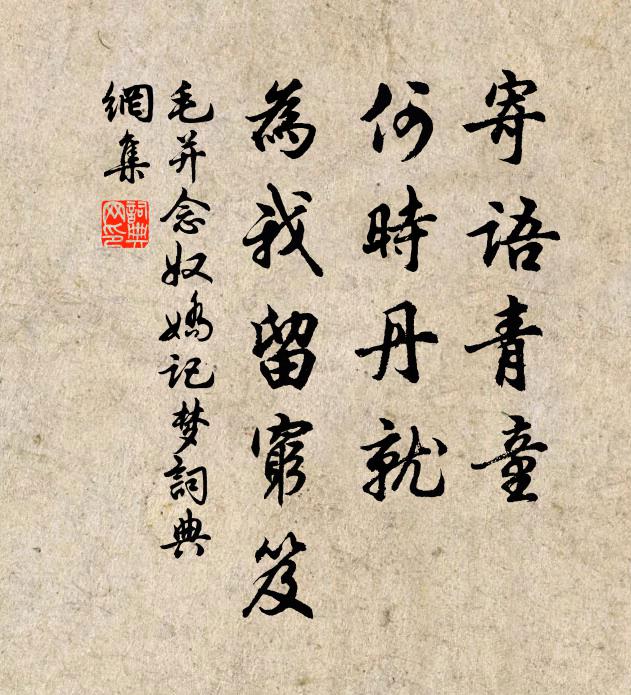 寄语青童
何時丹就
為我留窮笈
毛并念奴嬌記梦詞典
網集
詞典
网印